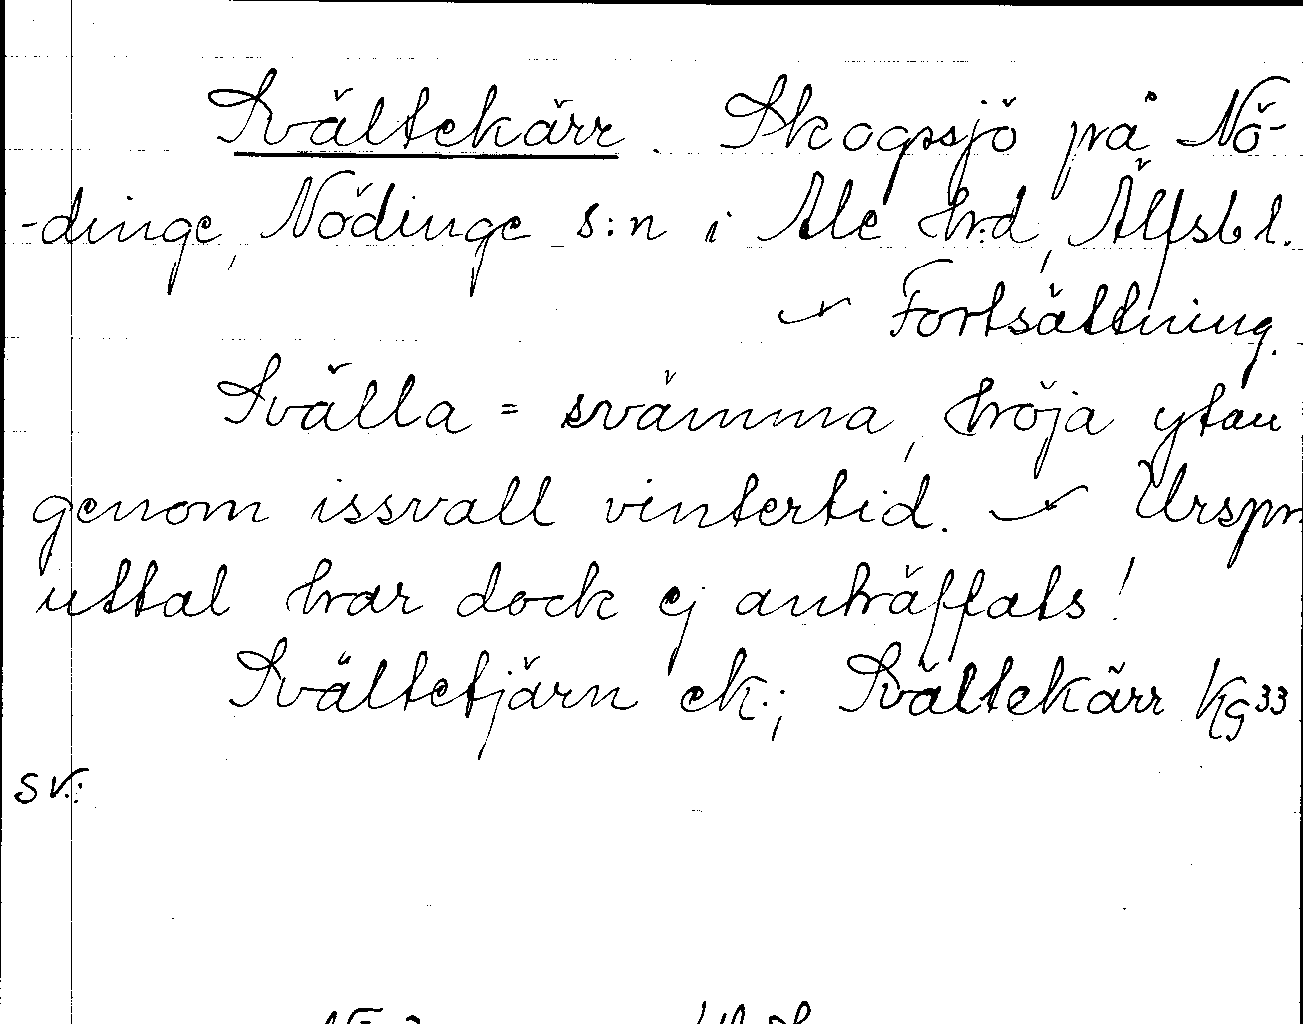 Svältekärr. Skogssjö på Nö-
-dinge, Nödinge s:n i Ale hrd, Älfsb l.
Fortsättning.
Svälla = svämma, höja ytan
genom issvall vintertid. Urspr
uttal har dock ej anträffats!
Svältetjärn ek.; Svältekärr Kg 33
sv.: